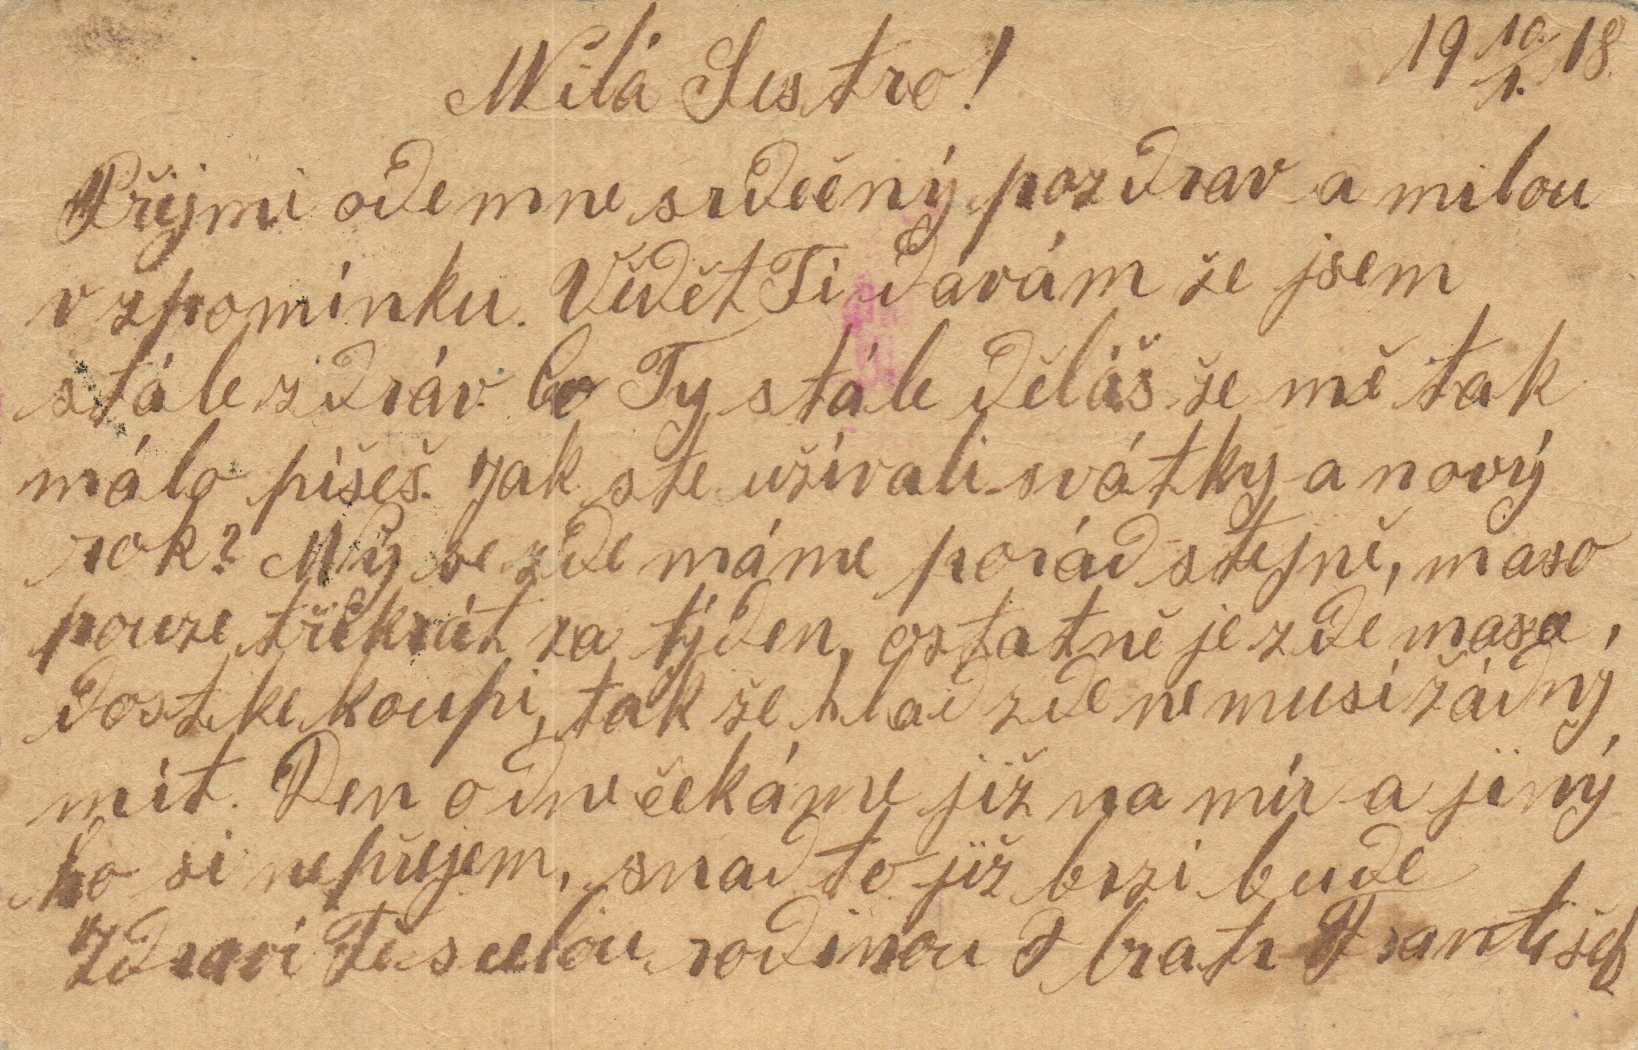 19 10/1. 18.
Milá Sestro!
Přijmi odemne srdečný pozdrav a milou
vzpomínku. Vědět Ti dávám že jsem
stále zdráv. Co Ty stále děláš že mě tak
málo píšeš. Jak ste užívali svátky a nový
rok? My se zde máme porád stejně, maso
pouze třikrát za týden, ostatně je zde masa,
dost ke koupi, tak že hlad zde nemusí žádný
mít. Den odne čekáme již na mír a jiný
ho si nepřejem, snad to již brzi bude
Zdraví Tě s celou rodinou T bratr František